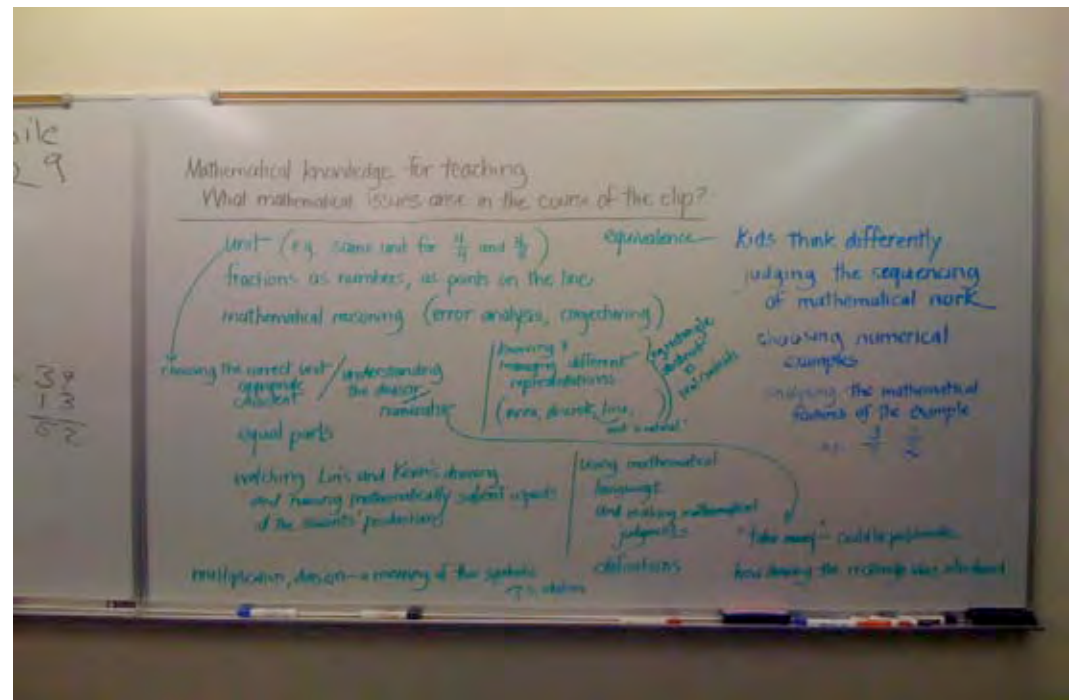 ile
9
Mathematical knowledge for teaching
What mathematical issues arise in the course of the clip?
unit (e.g. same unit for 4/4 and 4/8)
equivalence
fractions as numbers, as points on the line
mathematical reasoning (error analysis, conjecturing)
choosing the correct unit / understanding
appropriate
the divisor
numerator
knowing &
managing different
representations
(area, discrete, line,
not "neutral"
equal parts
watching Lin's and Kevin's drawing
and naming mathematically salient aspects
of the students' productions
using mathematical
language
and making mathematical
judgments
definitions
multiplication, division — meaning of the symbolic
Kids think differently
judging the sequencing
of mathematical work
choosing numerical
examples
analyzing the mathematical
features of the example
"take away" — could be problematic
how drawing the rectangle was introduced
3
1 3
2